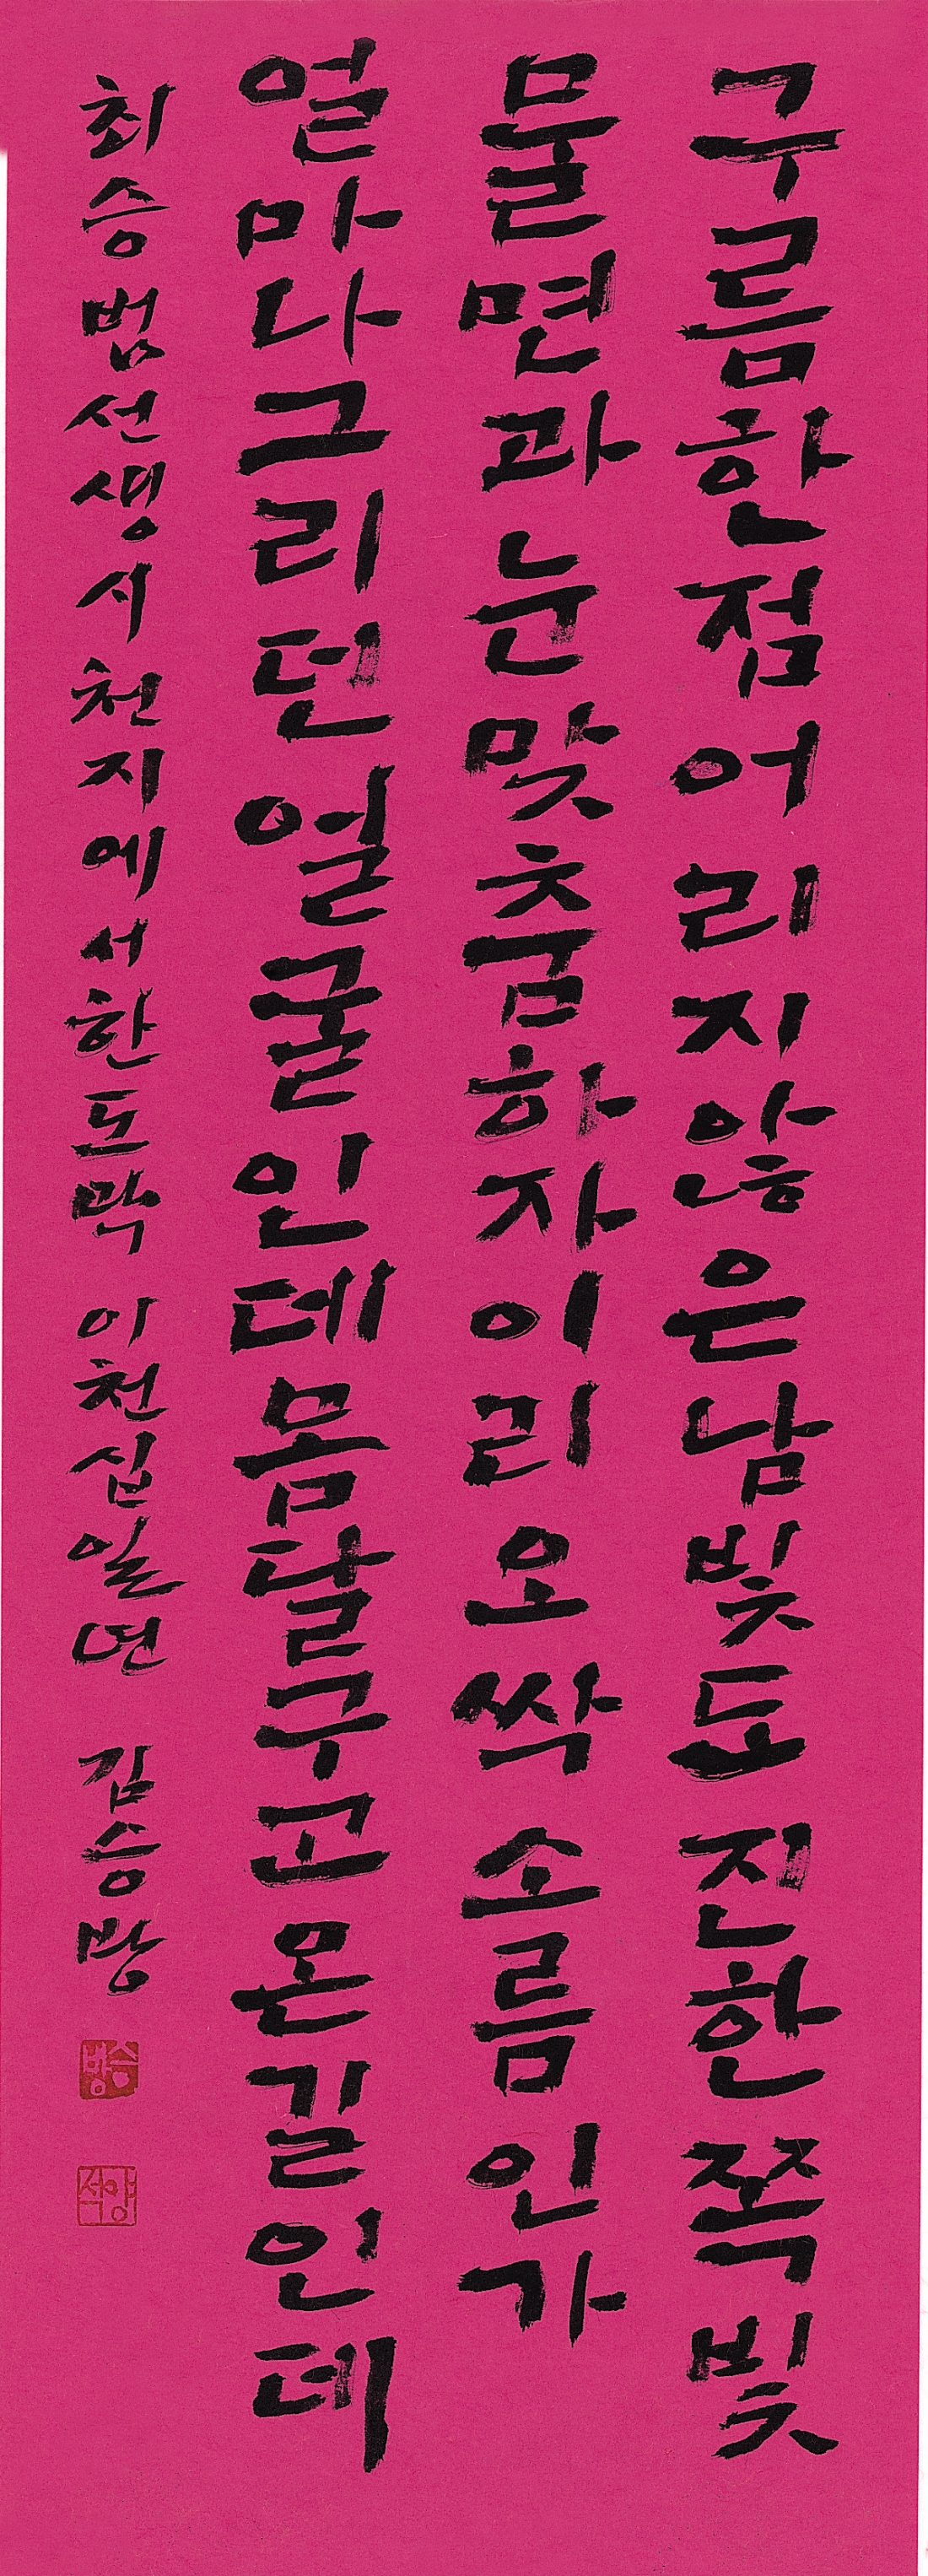 구름한점어리지않은남빛도진한쪽빛
물면과눈맞춤하자이리오싹소름인가
얼마나그리던얼굴인데몸달구고온길인데
최승범선생시천지에서한도막 이천십일년 김승방
승방
석양